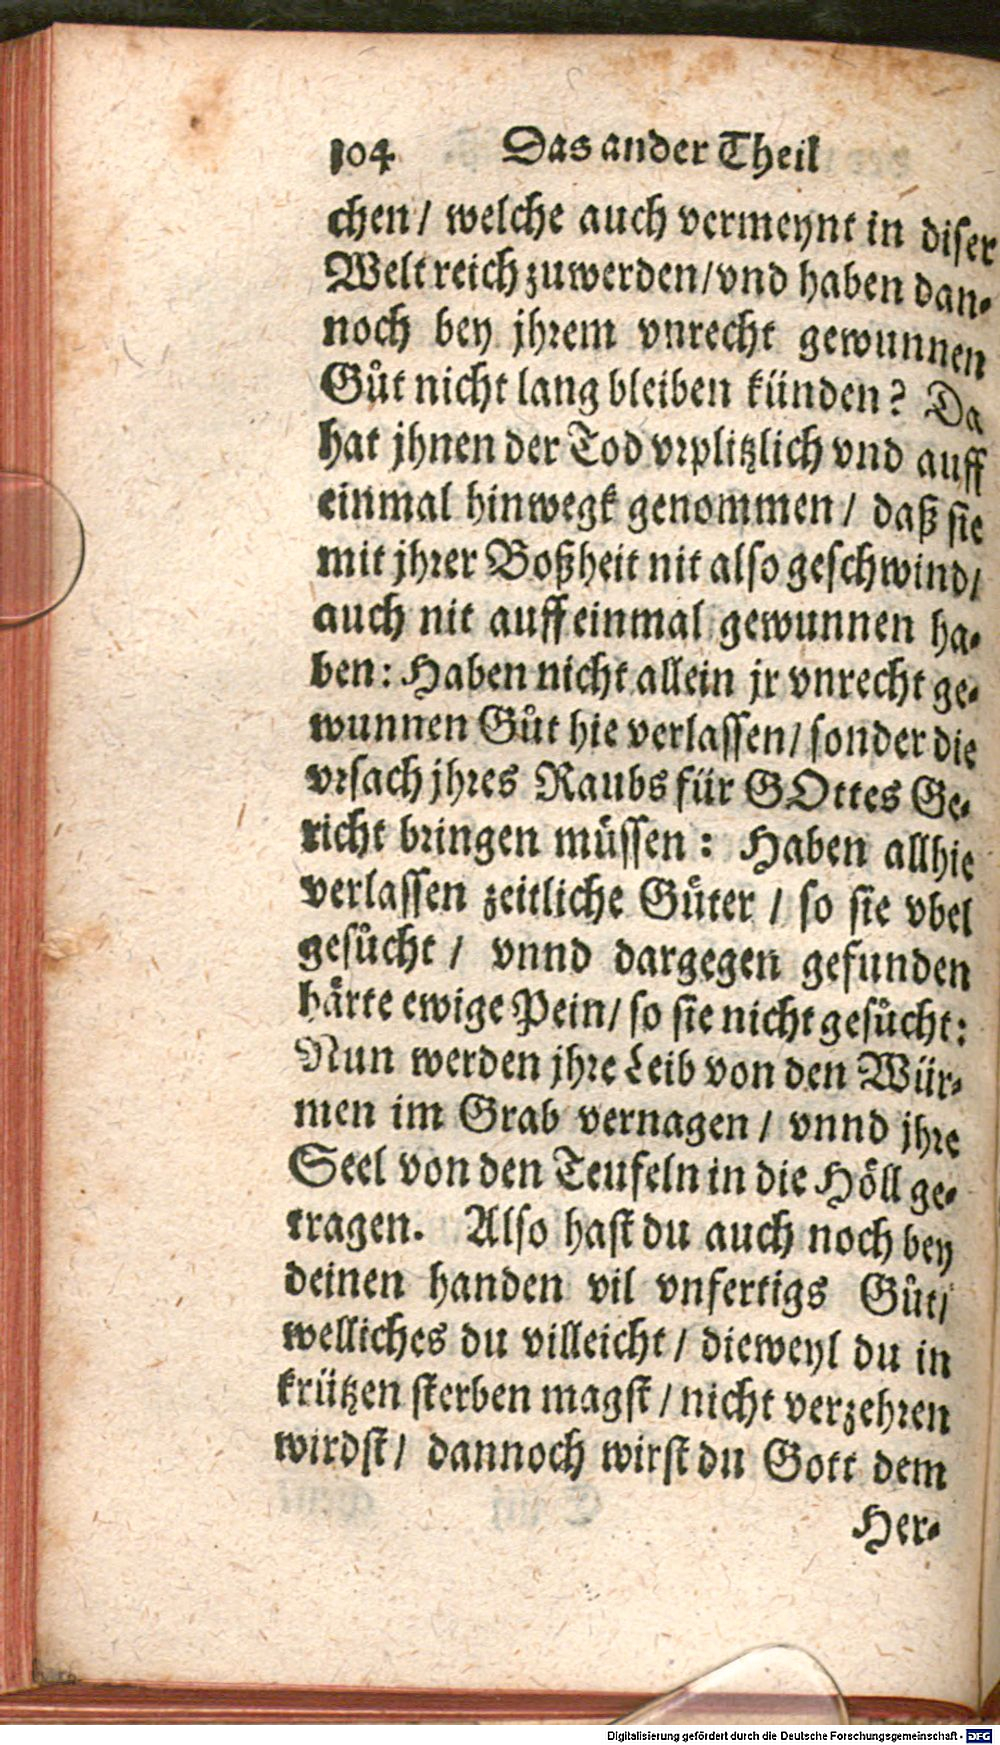 104 Das ander Theil
chen / welche auch vermeynt in diser
Welt reich zuwerden/vnd haben dan-
noch bey jhrem vnrecht gewunnen
Gůt nicht lang bleiben künden? Da
hat jhnen der Tod vrplitzlich vnd auff
einmal hinwegk genommen / daß sie
mit jhrer Boßheit nit also geschwind/
auch nit auff einmal gewunnen ha-
ben: Haben nicht allein jr vnrecht ge-
wunnen Gůt hie verlassen/ sonder die
vrsach jhres Raubs für GOttes Ge-
richt bringen müssen: Haben allhie
verlassen zeitliche Güter / so sie vbel
gesůcht / vnnd dargegen gefunden
härte ewige Pein/ so sie nicht gesůcht:
Nun werden jhre Leib von den Wür-
men im Grab vernagen / vnnd jhre
Seel von den Teufeln in die Höll ge-
tragen. Also hast du auch noch bey
deinen handen vil vnfertigs Gůt/
welliches du villeicht / dieweyl du in
krützen sterben magst / nicht verzehren
wirdst/ dannoch wirst du Gott dem
Her-
Digitalisierung gefördert durch die Deutsche Forschungsgemeinschaft - DFG